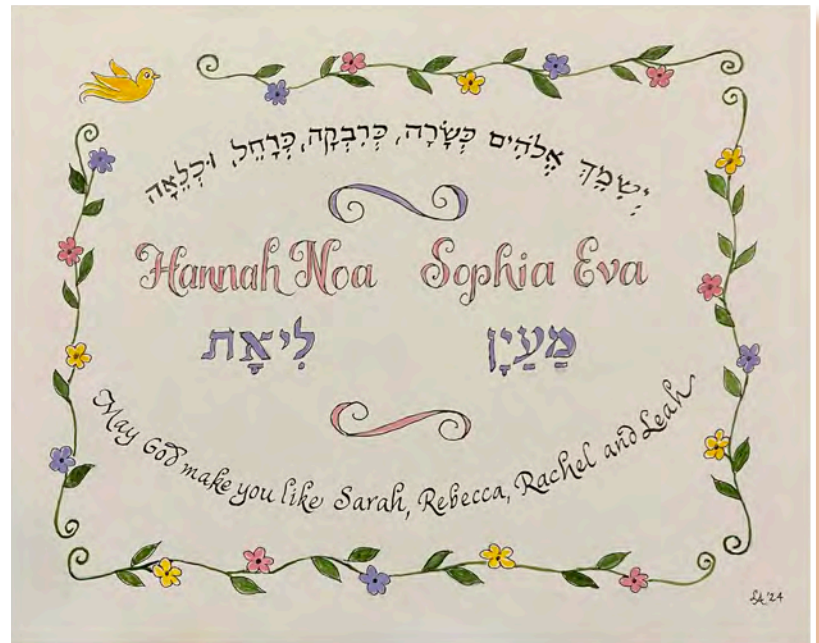 יְשִׂמֵךְ אֱלֹהִים כְּשָׂרָה, כְּרִבְקָה, כְּרָחֵל, וּכְלֵאָה
Hannah Noa Sophia Eva
לִיאַת מַעְיָן
May God make you like Sarah, Rebecca, Rachel and Leah
LA '24